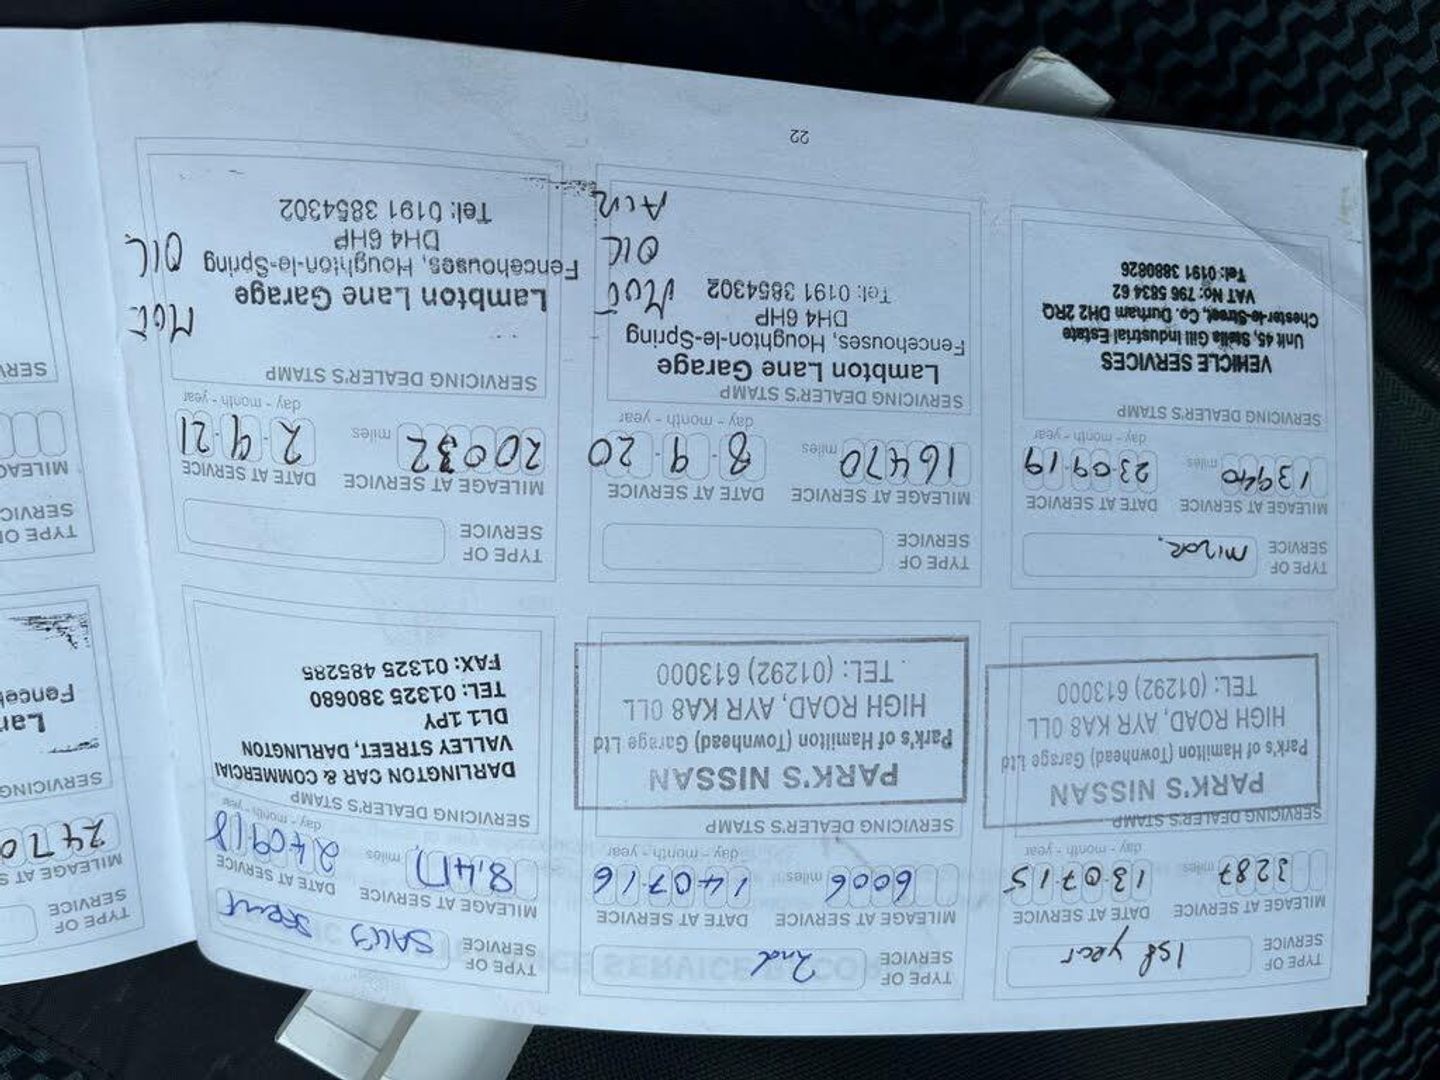 TYPE OF
SERVICE
1st year
MILEAGE AT SERVICE
DATE AT SERVICE
3287 miles
13·07·15
day - month - year
SERVICING DEALER'S STAMP
PARK'S NISSAN
Park's of Hamilton (Townhead) Garage Ltd
HIGH ROAD, AYR KA8 0LL
TEL: (01292) 613000
TYPE OF
SERVICE
2nd
MILEAGE AT SERVICE
DATE AT SERVICE
6006 miles
14 07 16
day - month - year
SERVICING DEALER'S STAMP
PARK'S NISSAN
Park's of Hamilton (Townhead) Garage Ltd
HIGH ROAD, AYR KA8 0LL
TEL: (01292) 613000
TYPE OF
SERVICE
MILEAGE AT SERVICE
DATE AT SERVICE
8.417 miles
24 09 18
day - month - year
SERVICING DEALER'S STAMP
DARLINGTON CAR & COMMERCIAL
VALLEY STREET, DARLINGTON
DL1 1PY
TEL: 01325 380680
FAX: 01325 485285
TYPE OF
SERVICE
MILEAGE AT S
2470
SERVICING
Lar
Fenceh
TYPE OF
SERVICE
minor
MILEAGE AT SERVICE
DATE AT SERVICE
13940 miles
23·09·19
day - month - year
SERVICING DEALER'S STAMP
VEHICLE SERVICES
Unit 45, Stella Gill Industrial Estate
Chester-le-Street, Co. Durham DH2 2RQ
VAT No: 796 5834 62
Tel: 0191 3880826
TYPE OF
SERVICE
MILEAGE AT SERVICE
DATE AT SERVICE
16470 miles
8·9·20
day - month - year
SERVICING DEALER'S STAMP
Lambton Lane Garage
Fencehouses, Houghton-le-Spring
DH4 6HP
Tel: 0191 3854302
MOT
OIL
TYPE OF
SERVICE
MILEAGE AT SERVICE
DATE AT SERVICE
20032 miles
2·9·21
day - month - year
SERVICING DEALER'S STAMP
Lambton Lane Garage
Fencehouses, Houghton-le-Spring
DH4 6HP
Tel: 0191 3854302
MOT
OIL
TYPE O
SERVICE
MILEAG
SERV
22